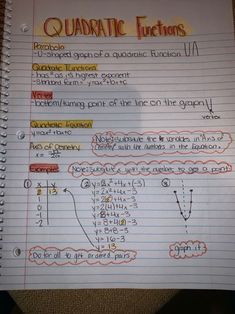 QUADRATIC Functions
Parabola
- U-shaped graph of a quadratic function
Quadratic Functions
- has x² as its highest exponent
- Standard form = y=ax²+bx+c
Vertex
- bottom/turning point of the line on the graph
vertex
Quadratic Equation
y=ax²+bx+c
Note: substitute the variables in Axis of
Symmetry with the numbers in the Equation.
Axis of Symmetry
x =
Example:
Note: substitute x with the number to get a point
① x y
2 13
1
0
-1
-2
② y=2x²+4x+(-3)
y=2x²+4x-3
y=2(4)+4x-3
y=8+4x-3
y=8+4(2)-3
y=8+8-3
y=16-3
y=13
③
Do for all to get ordered pairs
graph it